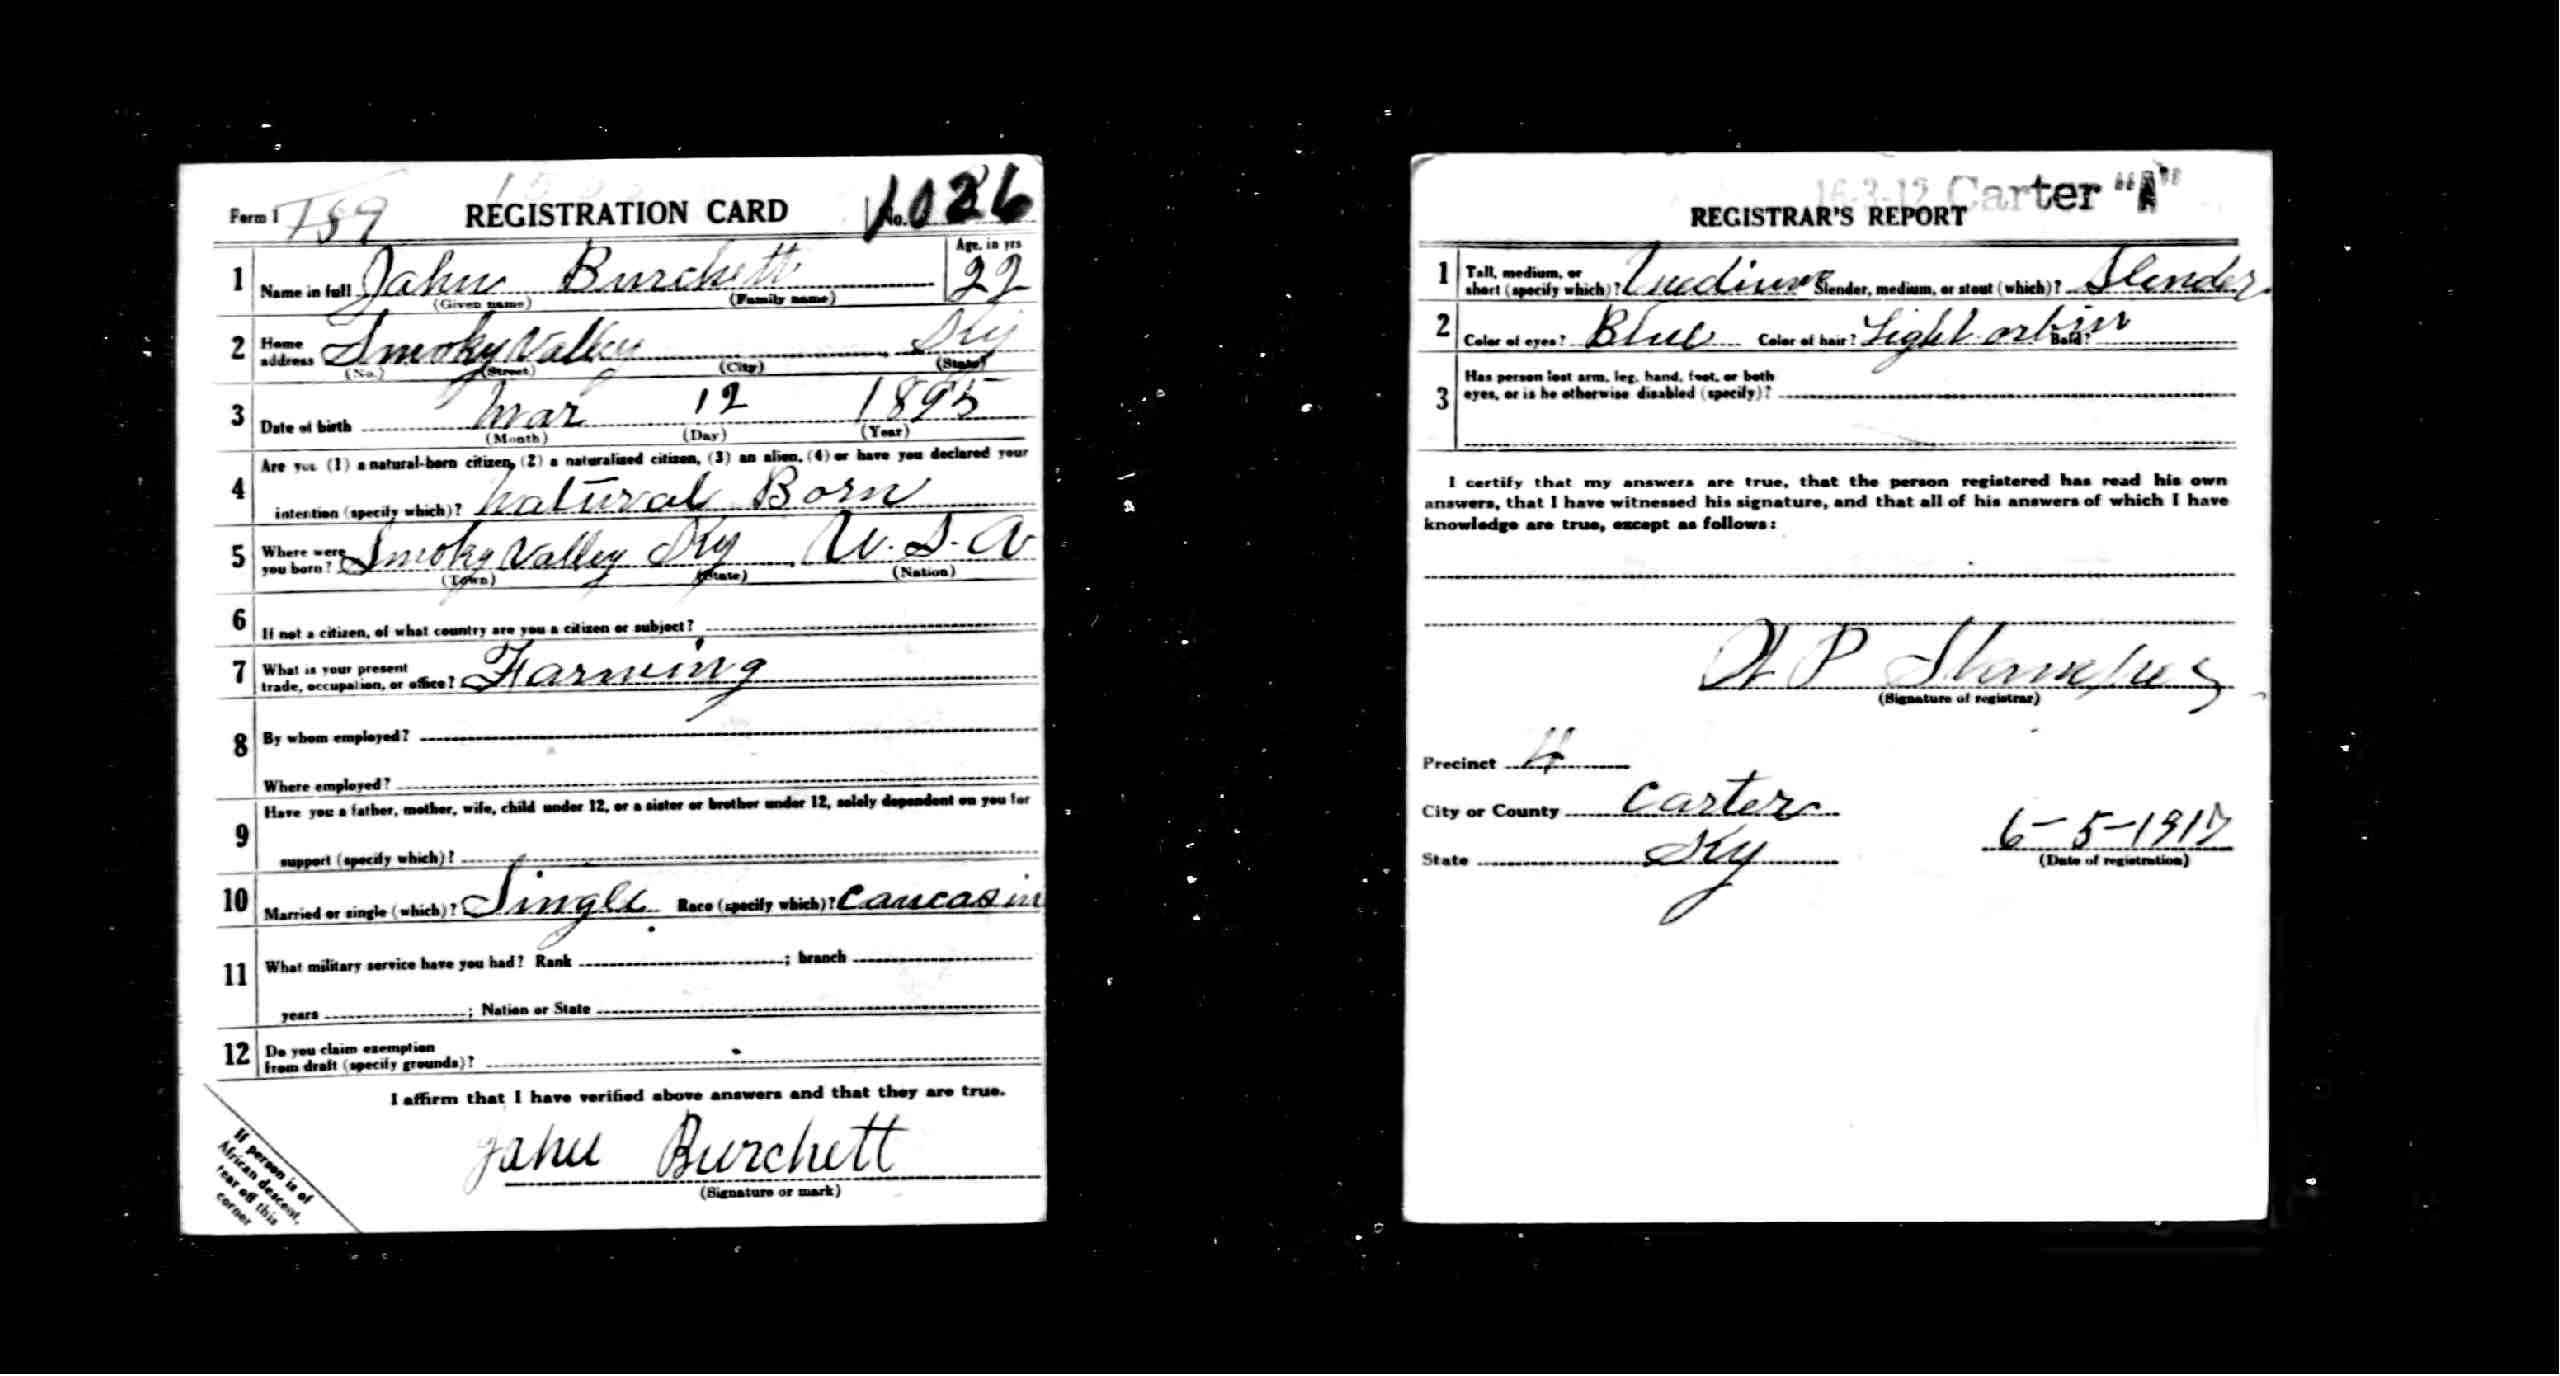 Form 1 759 REGISTRATION CARD No. 1026
1 Name in full John Burchett Age, in yrs 22
(Given name) (Family name)
2 Home address Smoky Valley Ky
(No.) (Street) (City) (State)
3 Date of birth Mar 12 1895
(Month) (Day) (Year)
Are you (1) a natural-born citizen, (2) a naturalized citizen, (3) an alien, (4) or have you declared your
4 intention (specify which)? Natural Born
5 Where were you born? Smoky Valley Ky U.S.A
(Town) (State) (Nation)
6 If not a citizen, of what country are you a citizen or subject?
7 What is your present trade, occupation, or office? Farming
8 By whom employed?
Where employed?
Have you a father, mother, wife, child under 12, or a sister or brother under 12, solely dependent on you for
9 support (specify which)?
10 Married or single (which)? Single Race (specify which)? Caucasin
11 What military service have you had? Rank ; branch
years ; Nation or State
12 Do you claim exemption
from draft (specify grounds)?
I affirm that I have verified above answers and that they are true.
John Burchett
(Signature or mark)
If person is of
African descent,
tear off this
corner
16-3-12 Carter "A"
REGISTRAR'S REPORT
1 Tall, medium, or short (specify which)? Medium Slender, medium, or stout (which)? Slender
2 Color of eyes? Blue Color of hair? Light orbin Bald?
Has person lost arm, leg, hand, foot, or both
3 eyes, or is he otherwise disabled (specify)?
I certify that my answers are true, that the person registered has read his own
answers, that I have witnessed his signature, and that all of his answers of which I have
knowledge are true, except as follows:
P
(Signature of registrar)
Precinct 4
City or County Carter
State Ky 6-5-1917
(Date of registration)